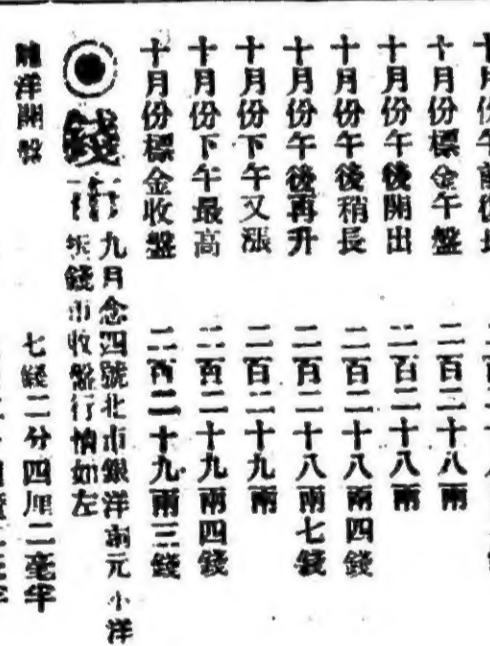 十月份標金午盤 二百二十八兩
十月份午後開出 二百二十八兩
十月份午後稍長 二百二十八兩四錢
十月份午後再升 二百二十八兩七錢
十月份下午又漲 二百二十九兩
十月份下午最高 二百二十九兩四錢
十月份標金收盤 二百二十九兩三錢
錢行 九月念四號北市銀洋劃元小洋
坎錢市收盤行情如左
龍洋開盤 七錢二分四厘二毫半